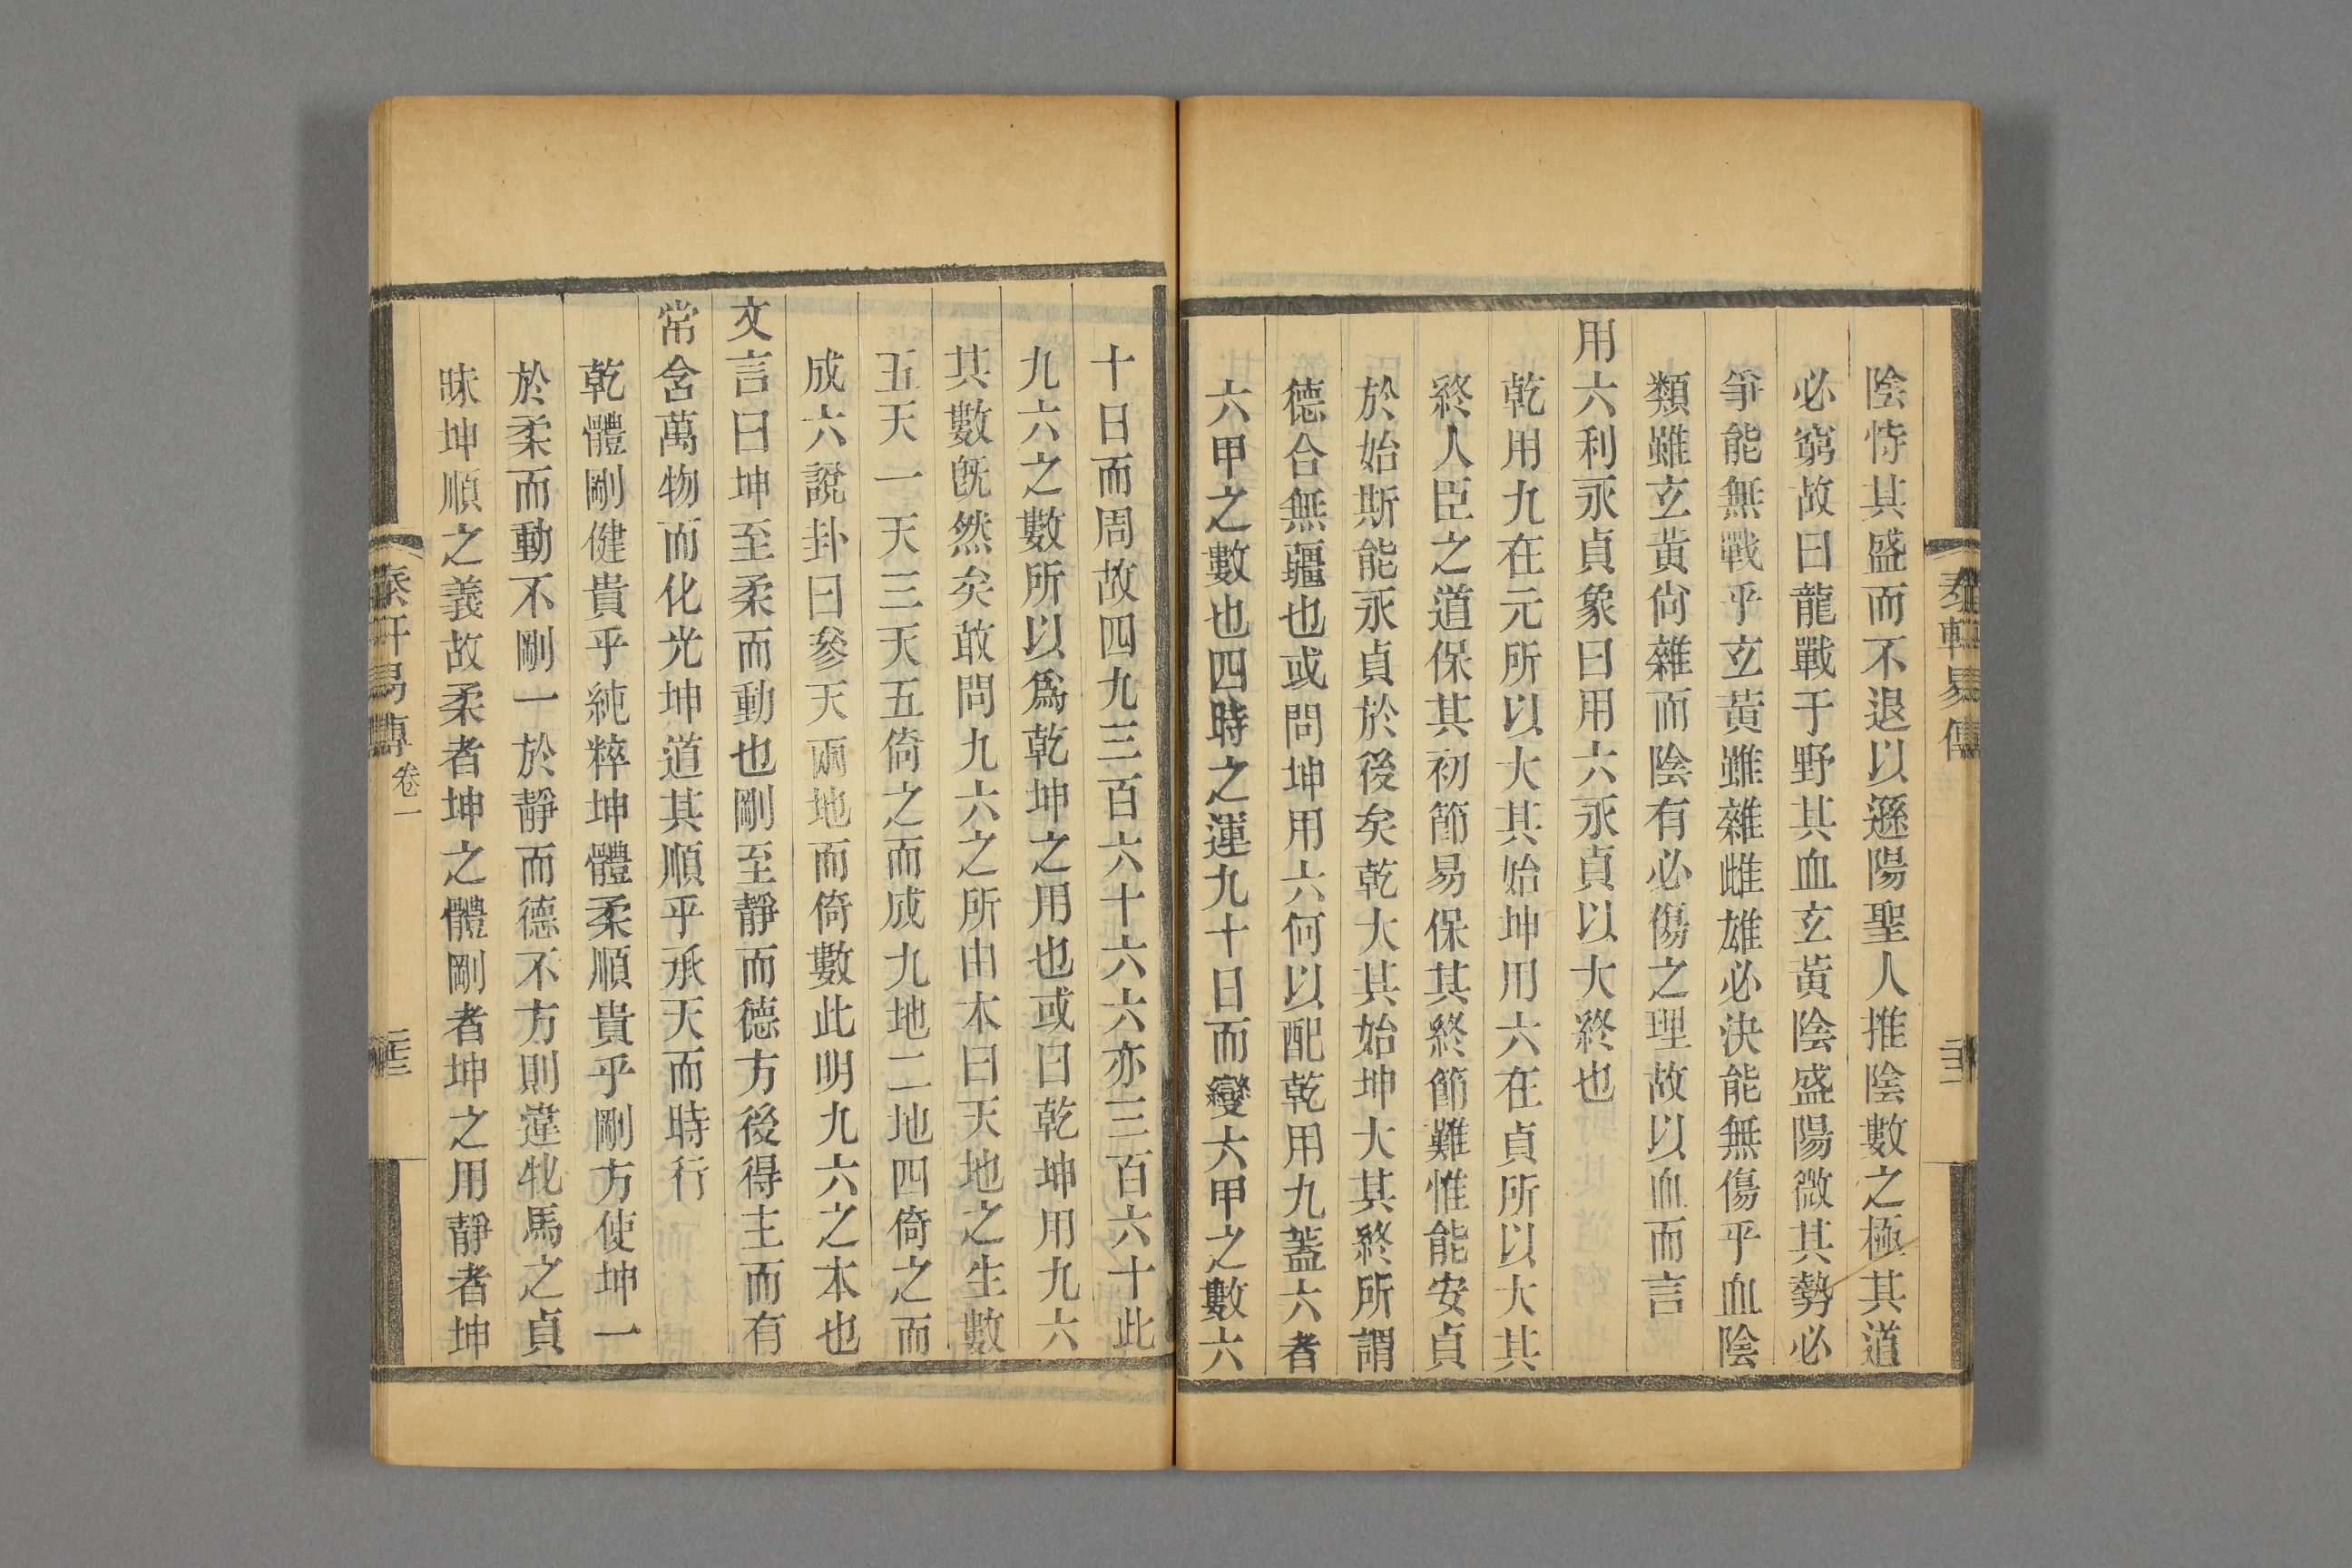 陰恃其盛而不退以遜陽聖人推陰數之極其道
必窮故曰龍戰于野其血玄黃陰盛陽微其勢必
爭能無戰乎玄黃雖雜雌雄必決能無傷乎血陰
類雖玄黃尙雜而陰有必傷之理故以血而言
用六利永貞象曰用六永貞以大終也
乾用九在元所以大其始坤用六在貞所以大其
終人臣之道保其初節易保其終節難惟能安貞
於始斯能永貞於後矣乾大其始坤大其終所謂
德合無疆也或問坤用六何以配乾用九蓋六者
六甲之數也四時之運九十日而變六甲之數六
十日而周故四九三百六十六六亦三百六十此
九六之數所以爲乾坤之用也或曰乾坤用九六
其數旣然矣敢問九六之所由本曰天地之生數
五天一天三天五倚之而成九地二地四倚之而
成六說卦曰參天兩地而倚數此明九六之本也
文言曰坤至柔而動也剛至靜而德方後得主而有
常含萬物而化光坤道其順乎承天而時行
乾體剛健貴乎純粹坤體柔順貴乎剛方使坤一
於柔而動不剛一於靜而德不方則違牝馬之貞
昧坤順之義故柔者坤之體剛者坤之用靜者坤
易傳
卷一